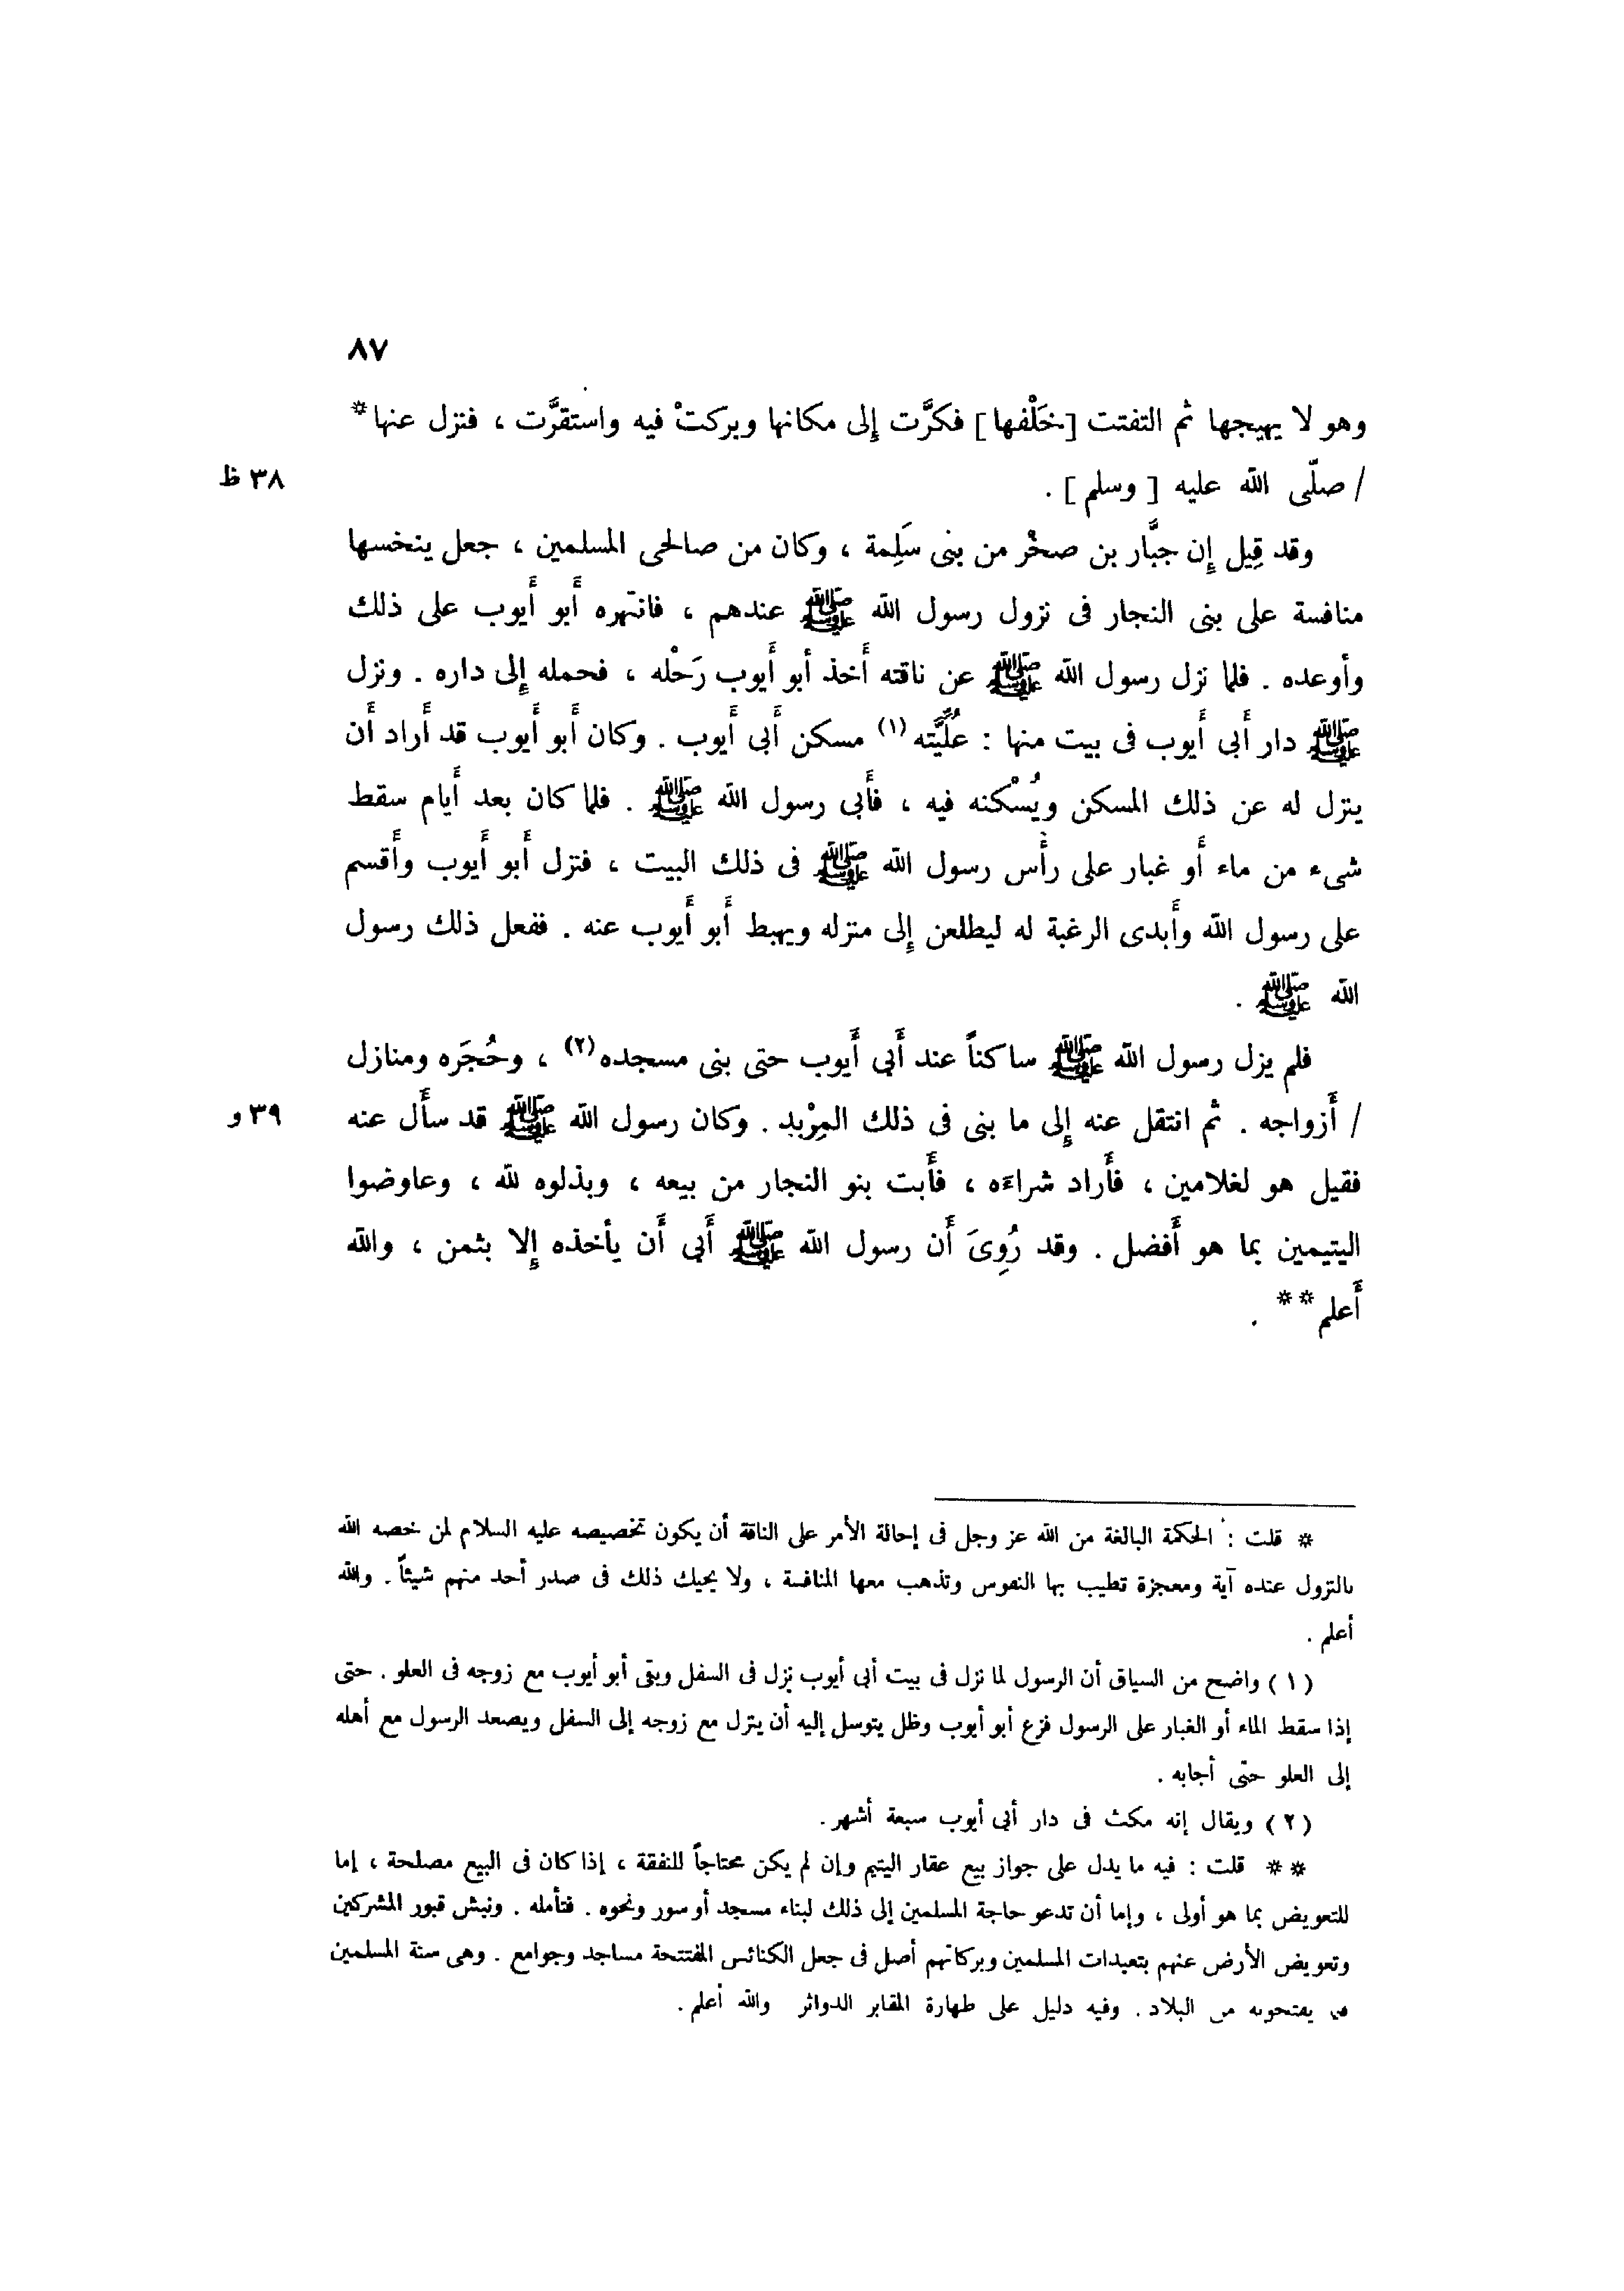 ٨٧
وهو لا يهيجها ثم التفتت [خَلْفها] فكرَّت إلى مكانها وبركتْ فيه واستقرَّت ، فنزل عنها*
/ صلّى الله عليه [ وسلم ] .
٣٨ ظ
وقد قِيل إن جبَّار بن صخْر من بنى سَلِمة ، وكان من صالحى المسلمين ، جعل ينخسها
منافسة على بنى النجار فى نزول رسول الله ﷺ عندهم ، فانتهره أَبو أَيوب على ذلك
وأوعده . فلما نزل رسول الله ﷺ عن ناقته أَخذ أبو أَيوب رَحْله ، فحمله إلى داره . ونزل
ﷺ دار أَبى أَيوب فى بيت منها : عُلِّيَّته (١) مسكن أَبى أَيوب . وكان أَبو أَيوب قد أَراد أَن
ينزل له عن ذلك المسكن ويُسْكنه فيه ، فأَبى رسول الله ﷺ . فلما كان بعد أَيام سقط
شىء من ماء أَو غبار على رأْس رسول الله ﷺ فى ذلك البيت ، فنزل أَبو أَيوب وأَقسم
على رسول الله وأَبدى الرغبة له ليطلعن إِلى منزله ويهبط أَبو أَيوب عنه . ففعل ذلك رسول
الله ﷺ .
فلم يزل رسول الله ﷺ ساكناً عند أَبى أَيوب حتى بنى مسجده(٢) ، وحُجَره ومنازل
/ أَزواجه . ثم انتقل عنه إِلى ما بنى فى ذلك المِرْبد . وكان رسول الله ﷺ قد سأَل عنه
٣٩ و
فقيل هو لغلامين ، فأَراد شراءَه ، فأَبت بنو النجار من بيعه ، وبذلوه لله ، وعاوضوا
اليتيمين بما هو أَفضل . وقد رُوِىَ أَن رسول الله ﷺ أَبى أَن يأخذه إِلا بثمن ، والله
أَعلم** .
* قلت : الحكمة البالغة من الله عز وجل فى إحالة الأمر على الناقة أن يكون تخصيصه عليه السلام لمن خصه الله
بالنزول عنده آية ومعجزة تطيب بها النفوس وتذهب معها المنافسة ، ولا يحيك ذلك فى صدر أحد منهم شيئاً . والله
أعلم .
( ١ ) واضح من السياق أن الرسول لما نزل فى بيت أبى أيوب نزل فى السفل وبقى أبو أيوب مع زوجه فى العلو . حتى
إذا سقط الماء أو الغبار على الرسول فزع أبو أيوب وظل يتوسل إليه أن ينزل مع زوجه إلى السفل ويصعد الرسول مع أهله
إلى العلو حتى أجابه .
( ٢ ) ويقال إنه مكث فى دار أبى أيوب سبعة أشهر .
** قلت : فيه ما يدل على جواز بيع عقار اليتيم وإن لم يكن محتاجاً للنفقة ، إذا كان فى البيع مصلحة ، إما
للتعويض بما هو أولى ، وإما أن تدعو حاجة المسلمين إلى ذلك لبناء مسجد أو سور ونحوه . فتأمله . ونبش قبور المشركين
وتعويض الأرض عنهم بتعبدات المسلمين وبركاتهم أصل فى جعل الكنائس المفتتحة مساجد وجوامع . وهى سنة المسلمين
يفتحونه من البلاد . وفيه دليل على طهارة المقابر الدواثر والله أعلم .